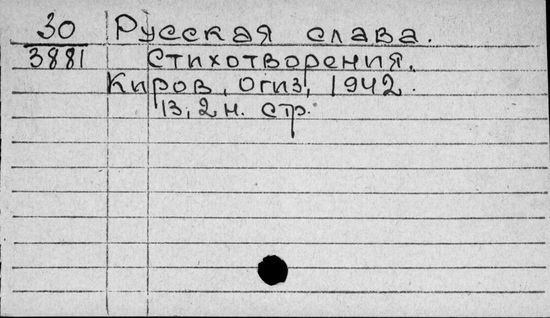 30 Русская слава.
3881 Стихотворения.
Киров, Огиз, 1942.
13, 2 н. стр.